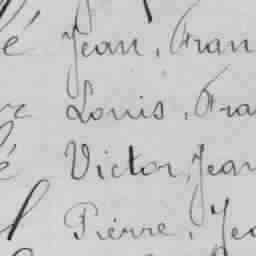 é Jean, Fran
Louis, Fra
é Victor, Jean
Pierre, Jea